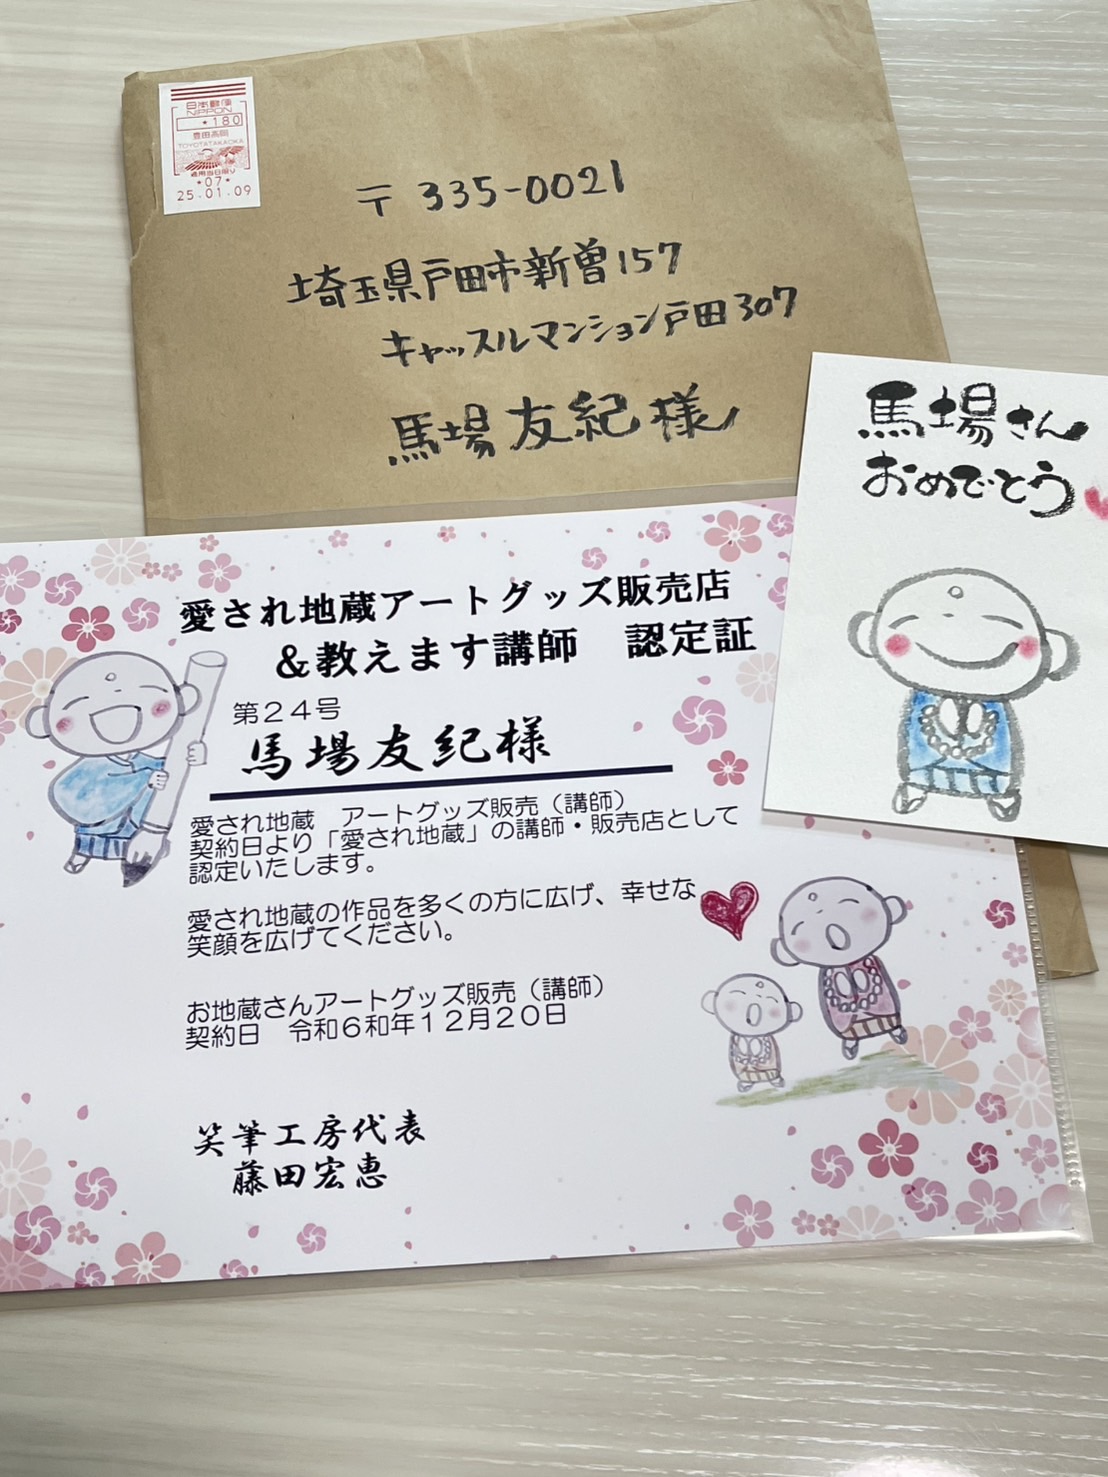 日本郵便
NIPPON
*180
豊田高岡
TOYOTATAKAOKA
適用当日限り
*07*
25.01.09
〒335-0021
埼玉県戸田市新曽157
キャッスルマンション戸田307
馬場友紀様
馬場さん
おめでとう
愛され地蔵アートグッズ販売店
&教えます講師 認定証
第24号
馬場友紀様
愛され地蔵 アートグッズ販売(講師)
契約日より「愛され地蔵」の講師・販売店として
認定いたします。
愛され地蔵の作品を多くの方に広げ、幸せな
笑顔を広げてください。
お地蔵さんアートグッズ販売(講師)
契約日 令和6和年12月20日
笑筆工房代表
藤田宏恵